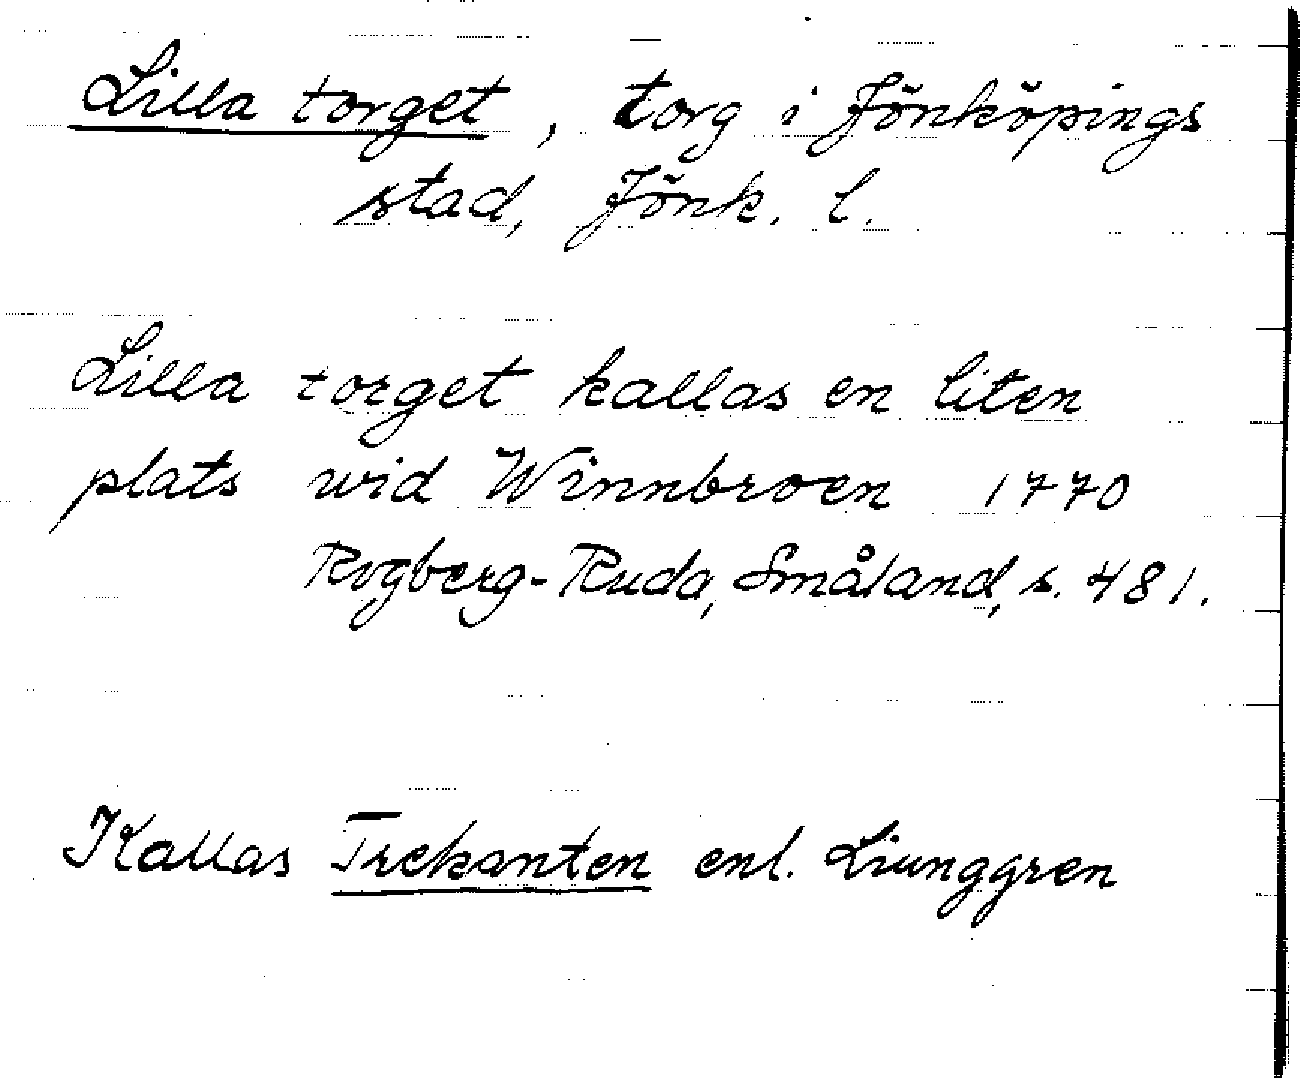 Lilla torget, torg i Jönköpings
stad, Jönk. l.
Lilla torget kallas en liten
plats wid Winnbroen 1770
Rogberg-Ruda, Småland, s. 481.
Kallas Trekanten enl. Liunggren